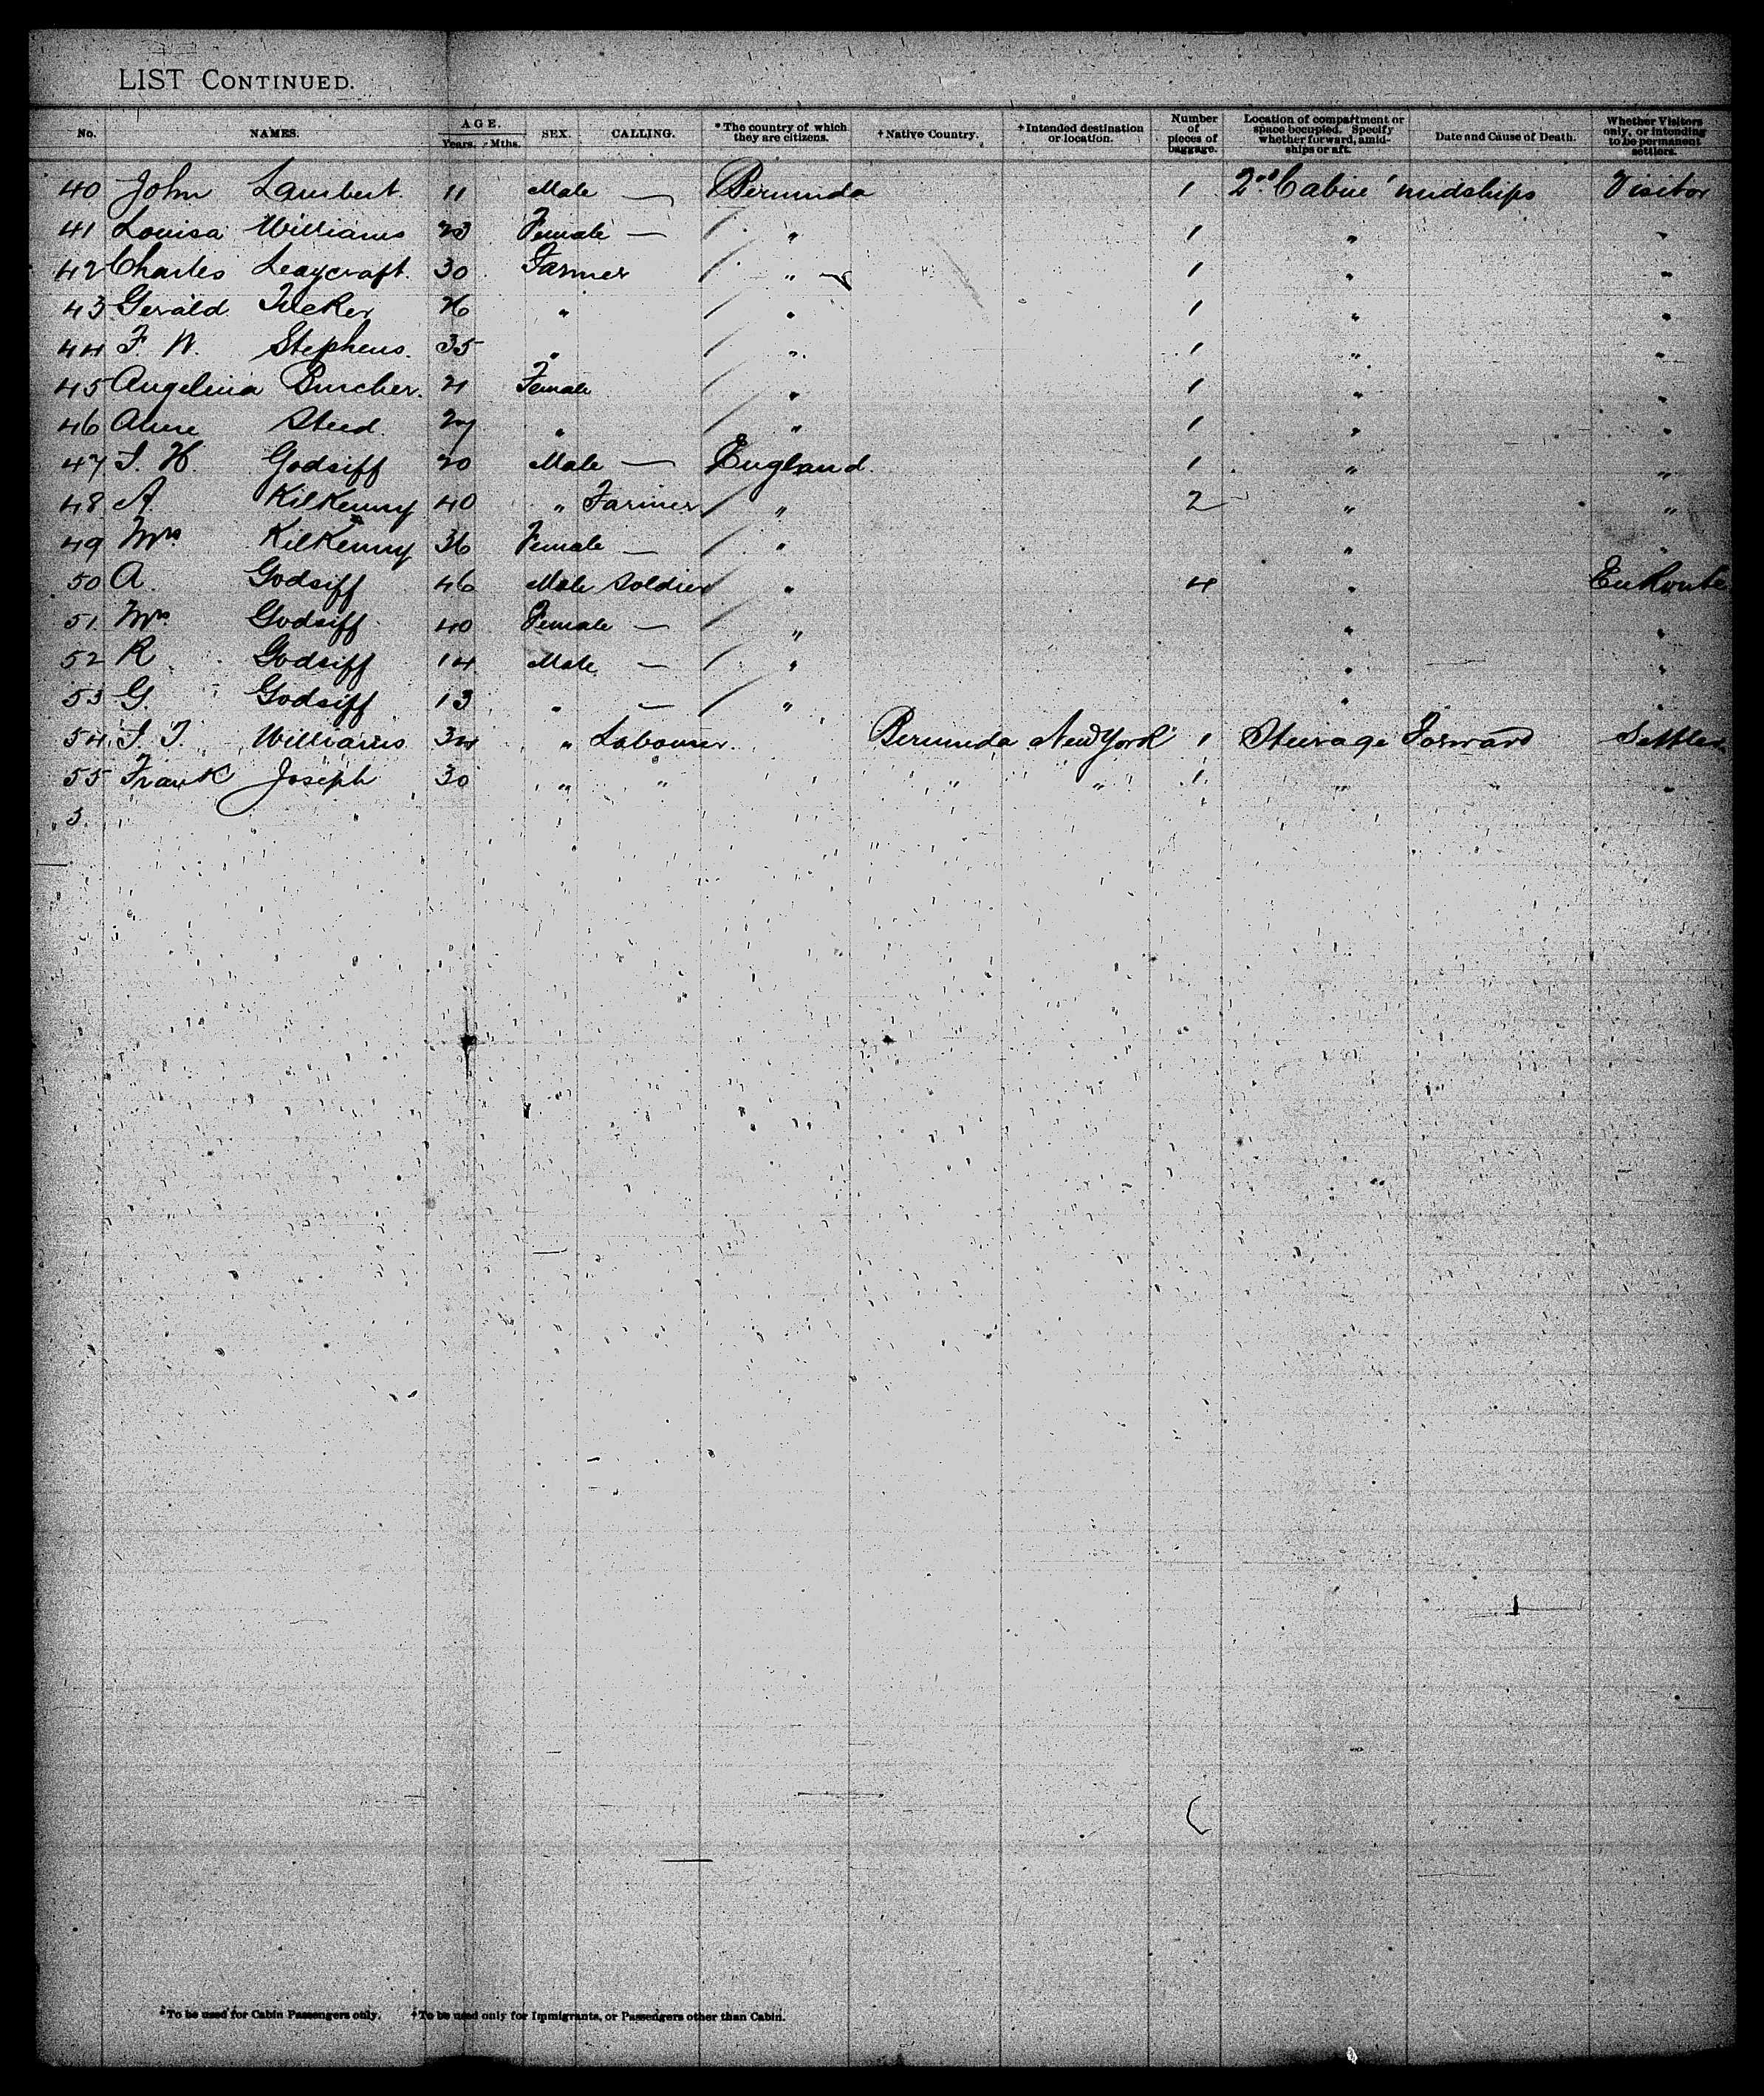 LIST CONTINUED.
No. NAMES. AGE. Years. Mths. SEX. CALLING. *The country of which they are citizens. †Native Country. †Intended destination or location. Number of pieces of baggage. Location of compartment or space occupied. Specify whether forward, amidships or aft. Date and Cause of Death. Whether Visitors only, or intending to be permanent settlers.
40 John Lambert. 11 Male — Bermuda 1 2nd Cabin midships Visitor
41 Louisa Williams 23 Female — " 1 " "
42 Charles Leaycraft. 30 Farmer " 1 " "
43 Gerald Tucker 26 " " 1 " "
44 F. W. Stephens. 35 " " 1 " "
45 Angelina Burcher. 21 Female " 1 " "
46 Steed 27 " " 1 " "
47 H. Godsiff 20 Male — England. 1 " "
48 A. Kilkenny 40 " Farmer " 2 " "
49 Mrs. Kilkenny 36 Female — " " "
50 A. Godsiff 46 Male Soldier " 4 " En Route
51 Mrs. Godsiff 40 Female — " " "
52 R Godsiff 14 Male — " " "
53 G. Godsiff 13 " — " " "
54 Williams 34 " Labourer. Bermuda New York 1 Steerage Forward Settler
55 Frank Joseph 30 " " " " 1 " " "
*To be used for Cabin Passengers only. †To be used only for Immigrants, or Passengers other than Cabin.